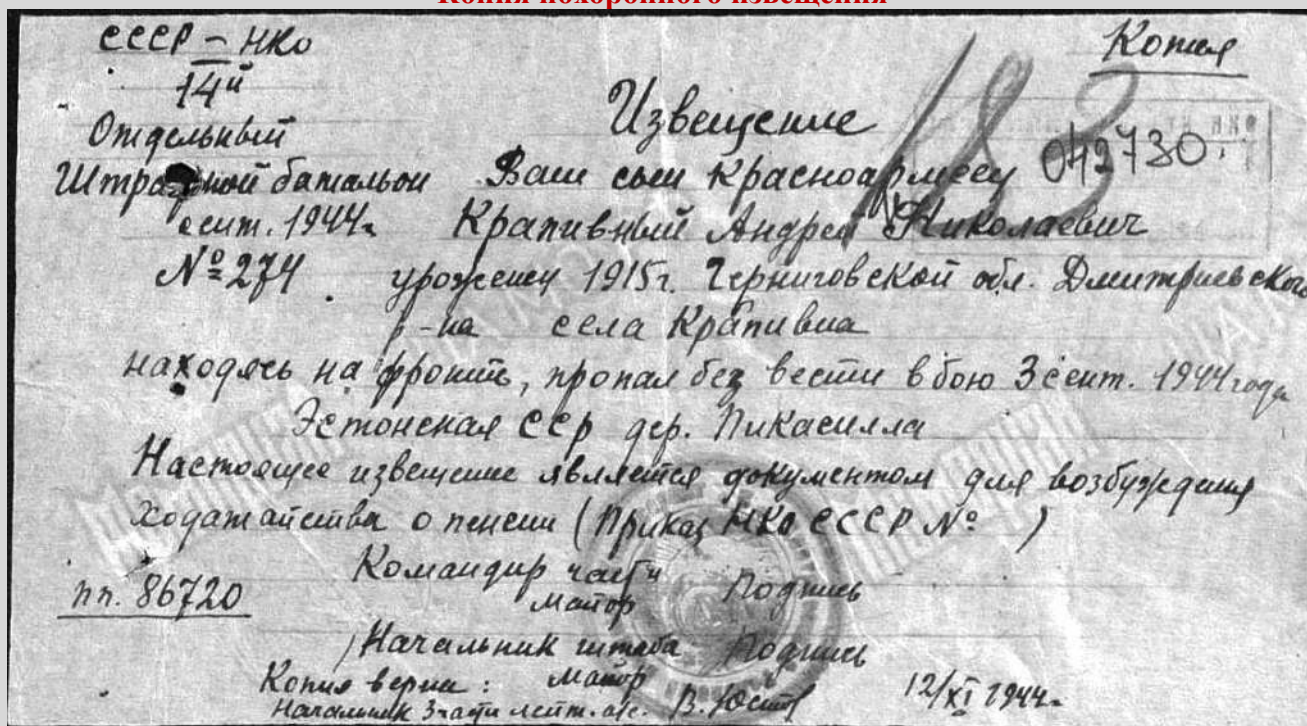 Копия похоронного извещения
СССР – НКО
14й
Отдельный
Штрафной батальон
сент. 1944г
№ 274
Копия
183
042730
Извещение
Ваш сын красноармеец
Крапивный Андрей Николаевич
урожениц 1915г. Черниговской обл. Дмитриевского
р-на села Крапивна
находясь на фронте, пропал без вести в бою 3 сент. 1944 года
Эстонская ССР дер. Пикасилла
Настоящее извещение является документом для возбуждения
ходатайства о пенсии (Приказ НКО СССР № )
Командир части
майор Подпись
пп. 86720
Начальник штаба Подпись
майор
Копия верна:
Начальник 3 части
12/XI 1944г